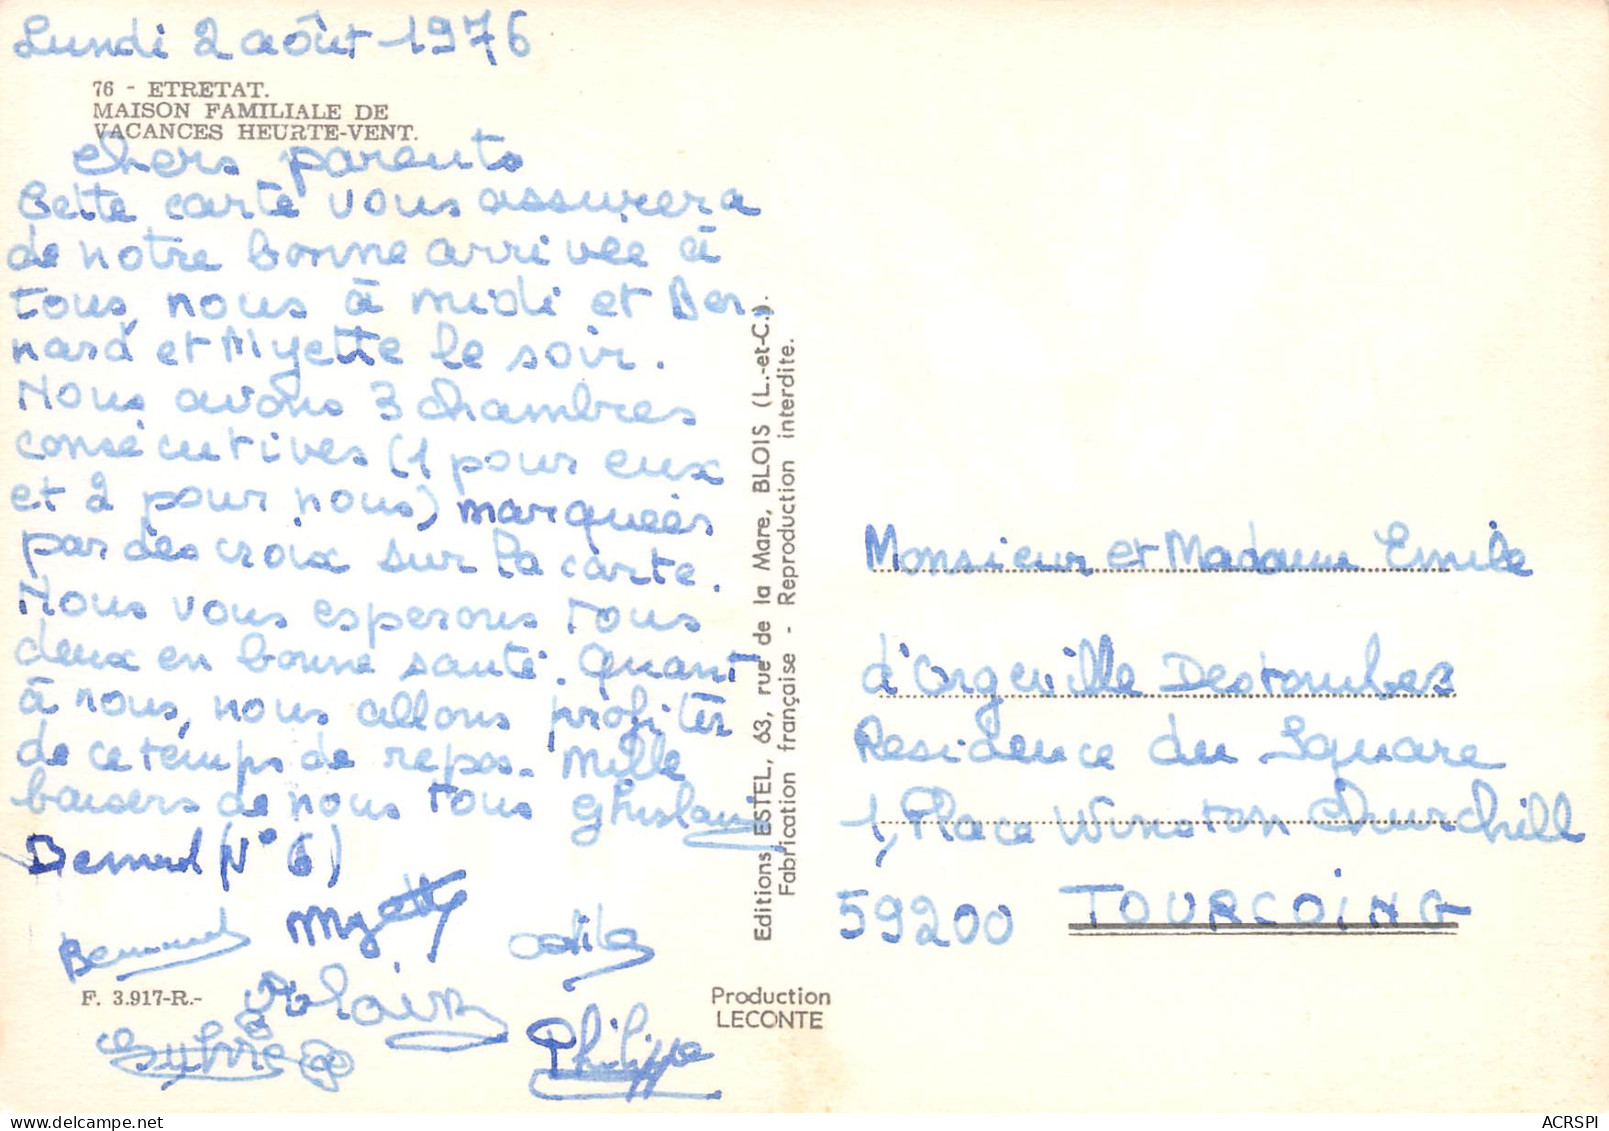 Lundi 2 août 1976
76 - ETRETAT.
MAISON FAMILIALE DE
VACANCES HEURTE-VENT.
chers parents
Cette carte vous assurera
de notre bonne arrivée à
tous, nous à midi et Ber-
nard et Myette le soir.
Nous avons 3 chambres
consécutives (1 pour eux
et 2 pour nous) marquées
par des croix sur la carte.
Nous vous esperons tous
deux en bonne santé. Quant
à nous, nous allons profiter
de ce temps de repos. Mille
baisers de nous tous Ghislaine
Bernard (N° 6)
Bernard Myette Odile
Alain
Sylvie Philippe
F. 3.917-R.-
Editions ESTEL, 63, rue de la Mare, BLOIS (L.-et-C.).
Fabrication française - Reproduction interdite.
Production
LECONTE
Monsieur et Madame Emile
d'Orgeville Destombes
Residence du Square
1, Place Winston Churchill
59200 TOURCOING
ACRSPI